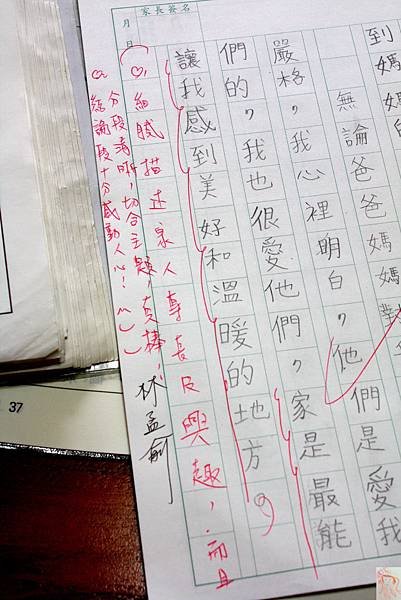 到媽媽
無論爸爸媽媽對
嚴格，我心裡明白，他們是愛我
們的，我也很愛他們，家是最能
讓我感到美好和溫暖的地方。
家長簽名
月 日
細膩描述家人專長及興趣，而且
分段清晰，切合主題，真棒，
結論段十分感動人心！
37